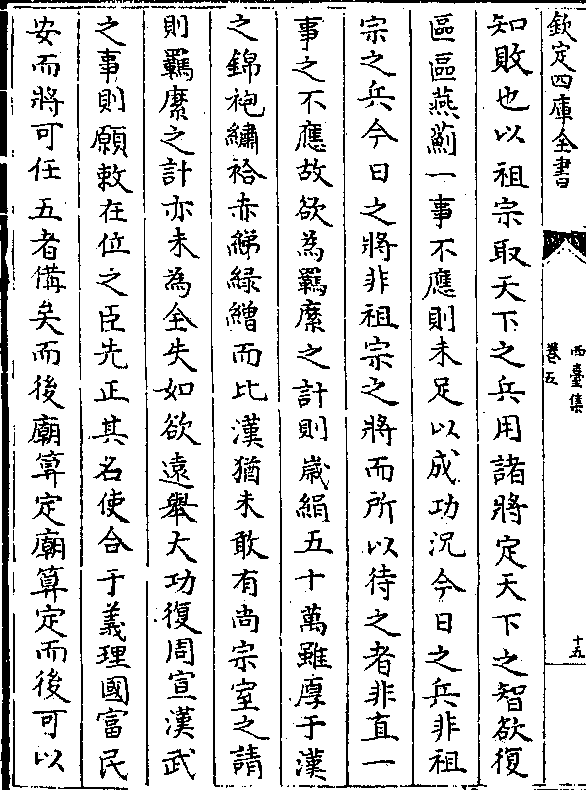 欽定四庫全書
西臺集
卷五
十五
知敗也以祖宗取天下之兵用諸將定天下之智欲復
區區燕薊一事不應則未足以成功況今日之兵非祖
宗之兵今日之將非祖宗之將而所以待之者非直一
事之不應故欲為羈縻之計則歲絹五十萬雖厚于漢
之錦袍繡袷赤綈緑繒而比漢猶未敢有尚宗室之請
則羈縻之計亦未為全失如欲遠舉大功復周宣漢武
之事則願敕在位之臣先正其名使合于義理國富民
安而將可任五者備矣而後廟算定廟算定而後可以